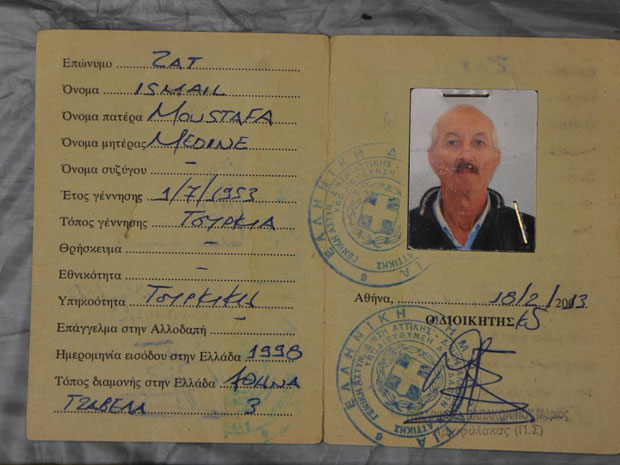 Επώνυμο ZAT
Όνομα ISMAIL
Όνομα πατέρα MOUSTAFA
Όνομα μητέρας MEDINE
Όνομα συζύγου –
Έτος γέννησης 1/7/1953
Τόπος γέννησης ΤΟΥΡΚΙΑ
Θρήσκευμα –
Εθνικότητα –
Υπηκοότητα ΤΟΥΡΚΙΚΗ
Επάγγελμα στην Αλλοδαπή –
Ημερομηνία εισόδου στην Ελλάδα 1998
Τόπος διαμονής στην Ελλάδα ΑΘΗΝΑ
ΤΖΑΒΕΛΑ 3
Αθήνα, 18/2/2013
Ο ΔΙΟΙΚΗΤΗΣ
ΕΛΛΗΝΙΚΗ
ΑΤΤΙΚΗΣ
ΕΛΛΗΝΙΚΗ
ΑΤΤΙΚΗΣ
(Π.Σ)